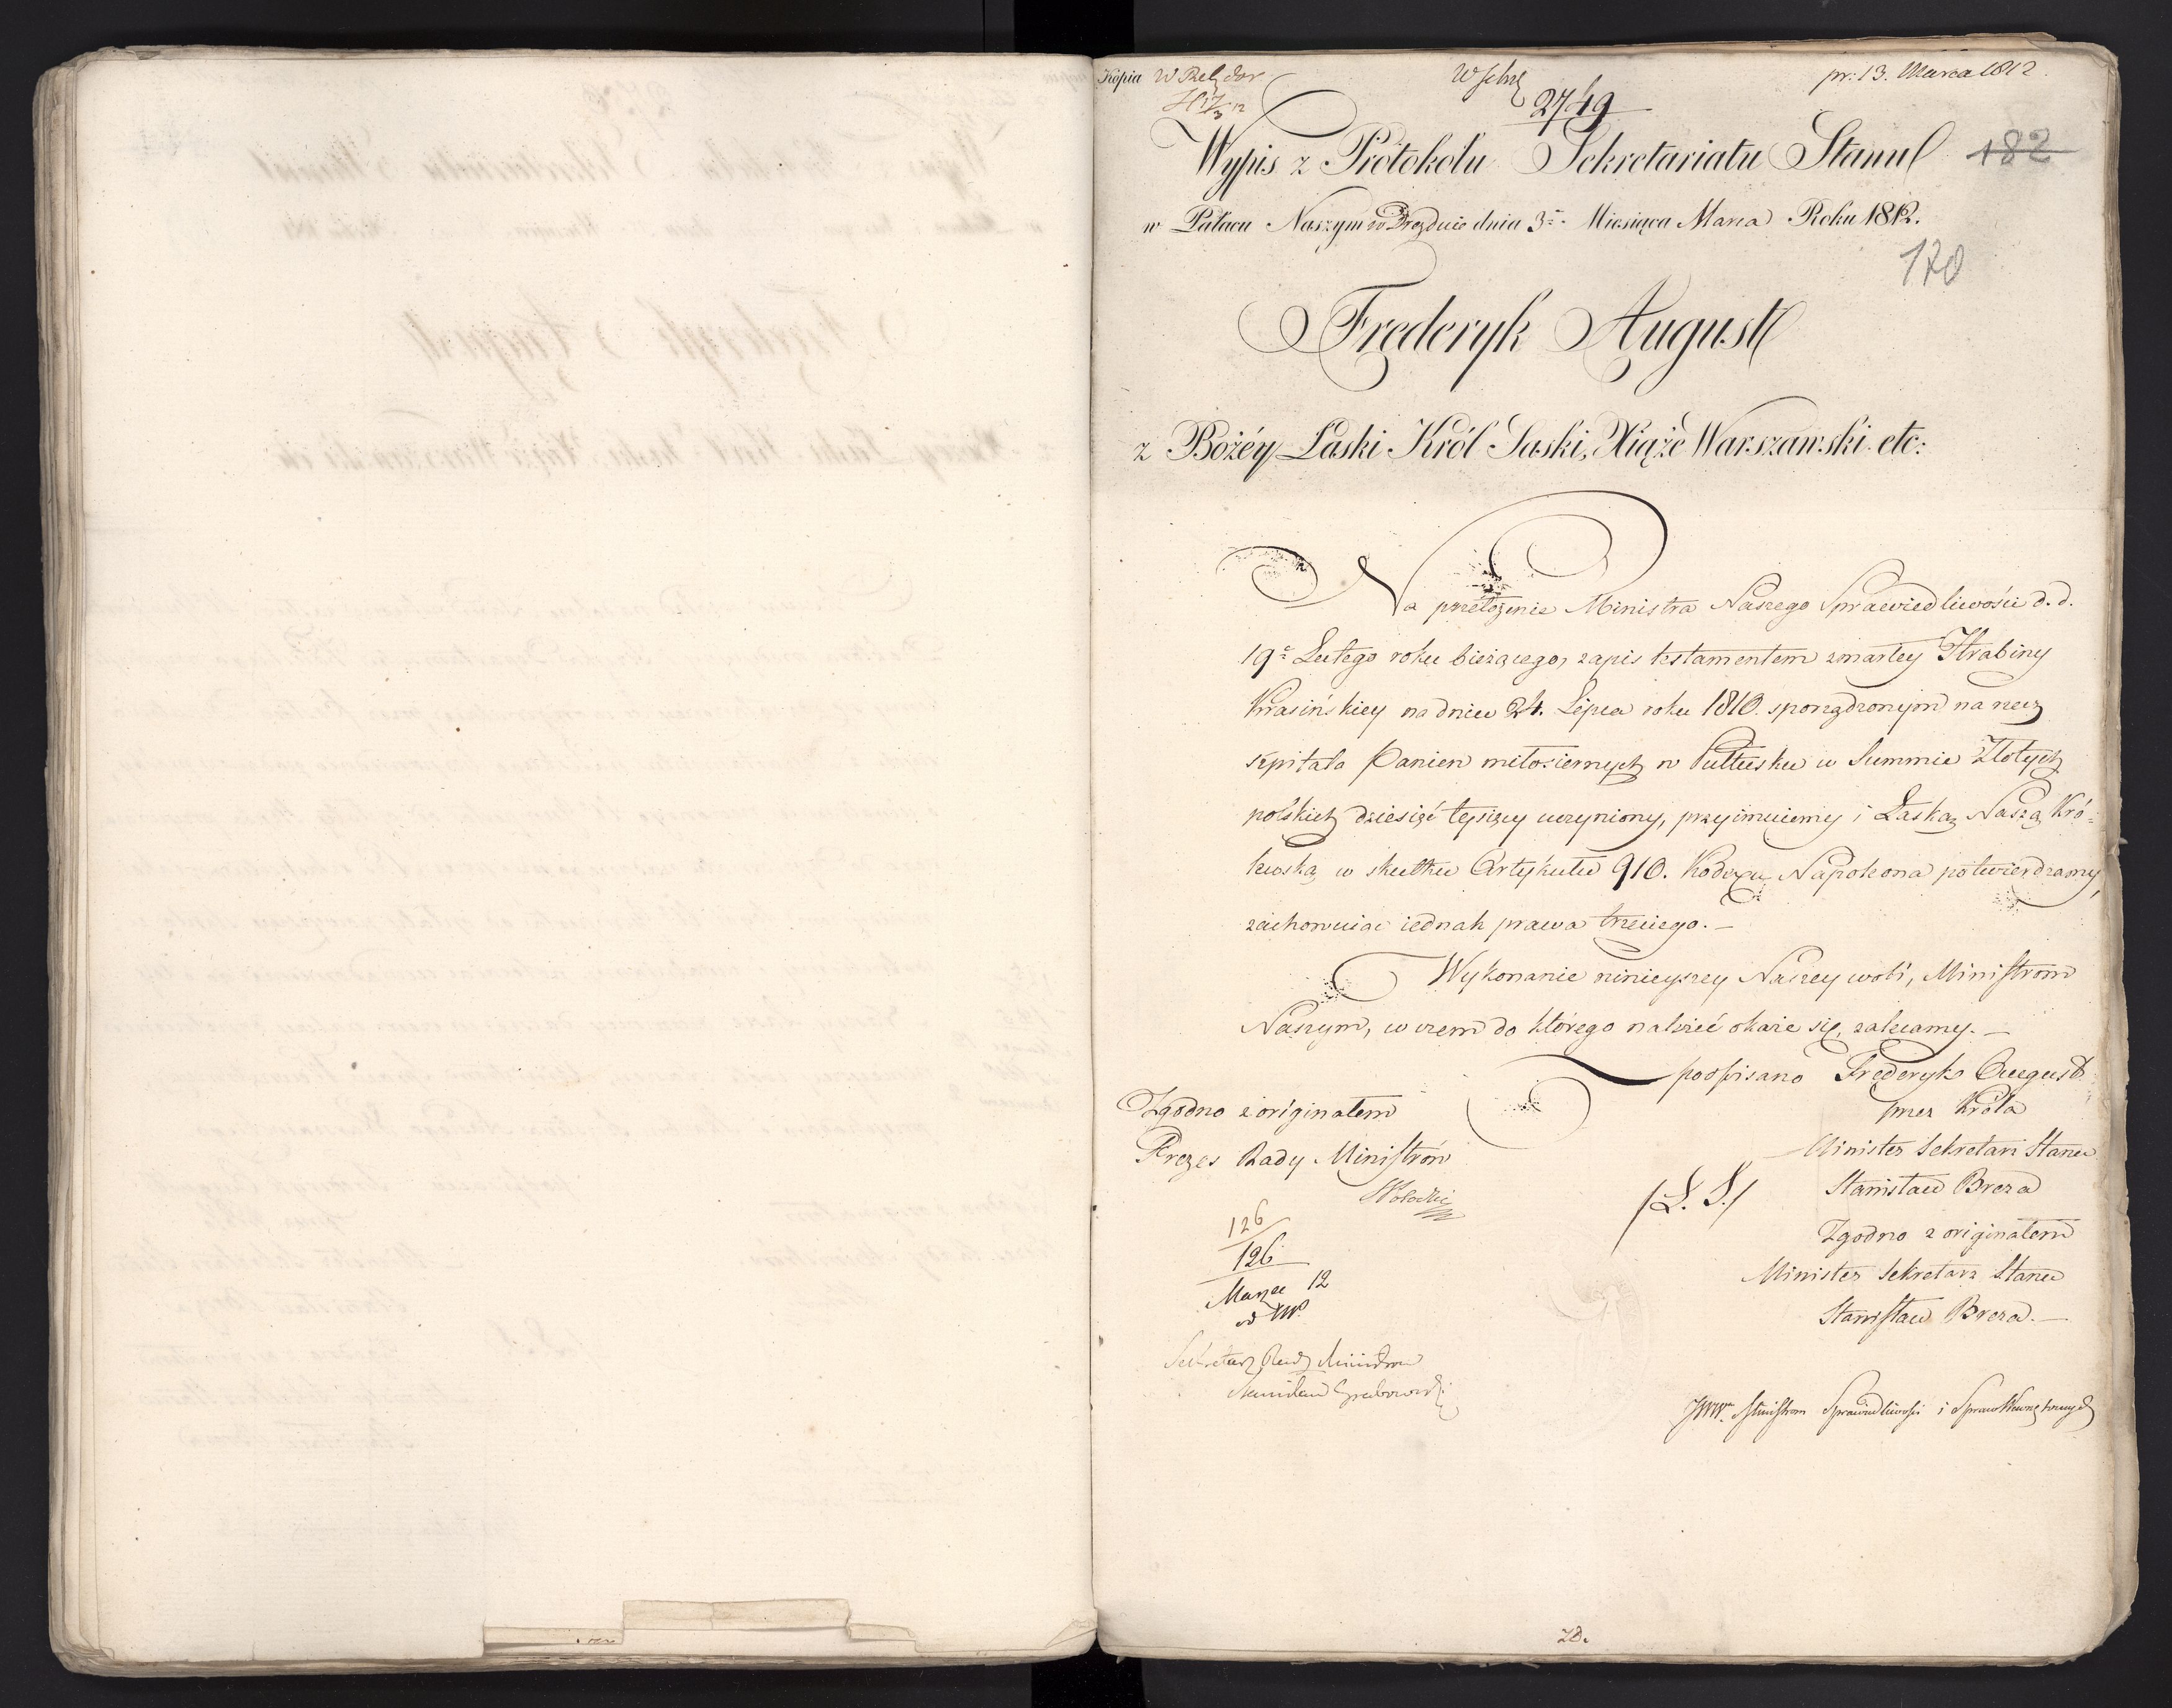 Kopia
pr. 13. Marca 1812.
2749
Wypis z Protokółu Sekretariatu Stanu 182
w Pałacu Naszym w Dreznie dnia 3º. Miesiąca Marca Roku 1812.
170
Frederyk August
z Bożéy Łaski Król Saski, Xiąże Warszawski etc:
Na przełożenie Ministra Naszego Sprawiedliwości d. d.
19º Lutego roku bieżącego, zapis testamentem zmarłey Hrabiny
Krasińskiey na dniu 24. Lipca roku 1810. sporządzonym na rzecz
szpitala Panien miłosiernych w Pułtusku w Summie Złotych
polskich dziesięć tysięcy uczyniony, przyimuiemy i Łaską Naszą Kró-
lewską w skutku Artykułu 910. Kodexu Napoleona potwierdzamy,
zachowuiąc iednak prawa trzeciego. —
Wykonanie ninieyszey Naszey woli, Ministrom
Naszym, w czem do którego należeć okaże się, zalecamy. —
podpisano Frederyk August
przez Króla
Minister Sekretarz Stanu
/L. S./ Stanisław Breza
Zgodno z originałem
Minister Sekretarz Stanu
Stanisław Breza. —
Zgodno z originałem
Prezes Rady Ministrów
126
126
Marzec 12
Sekretarz Rady Ministrów
Stanisław Grabowski
JWW. Ministrom Sprawiedliwości i Spraw Wewnętrznych
28.